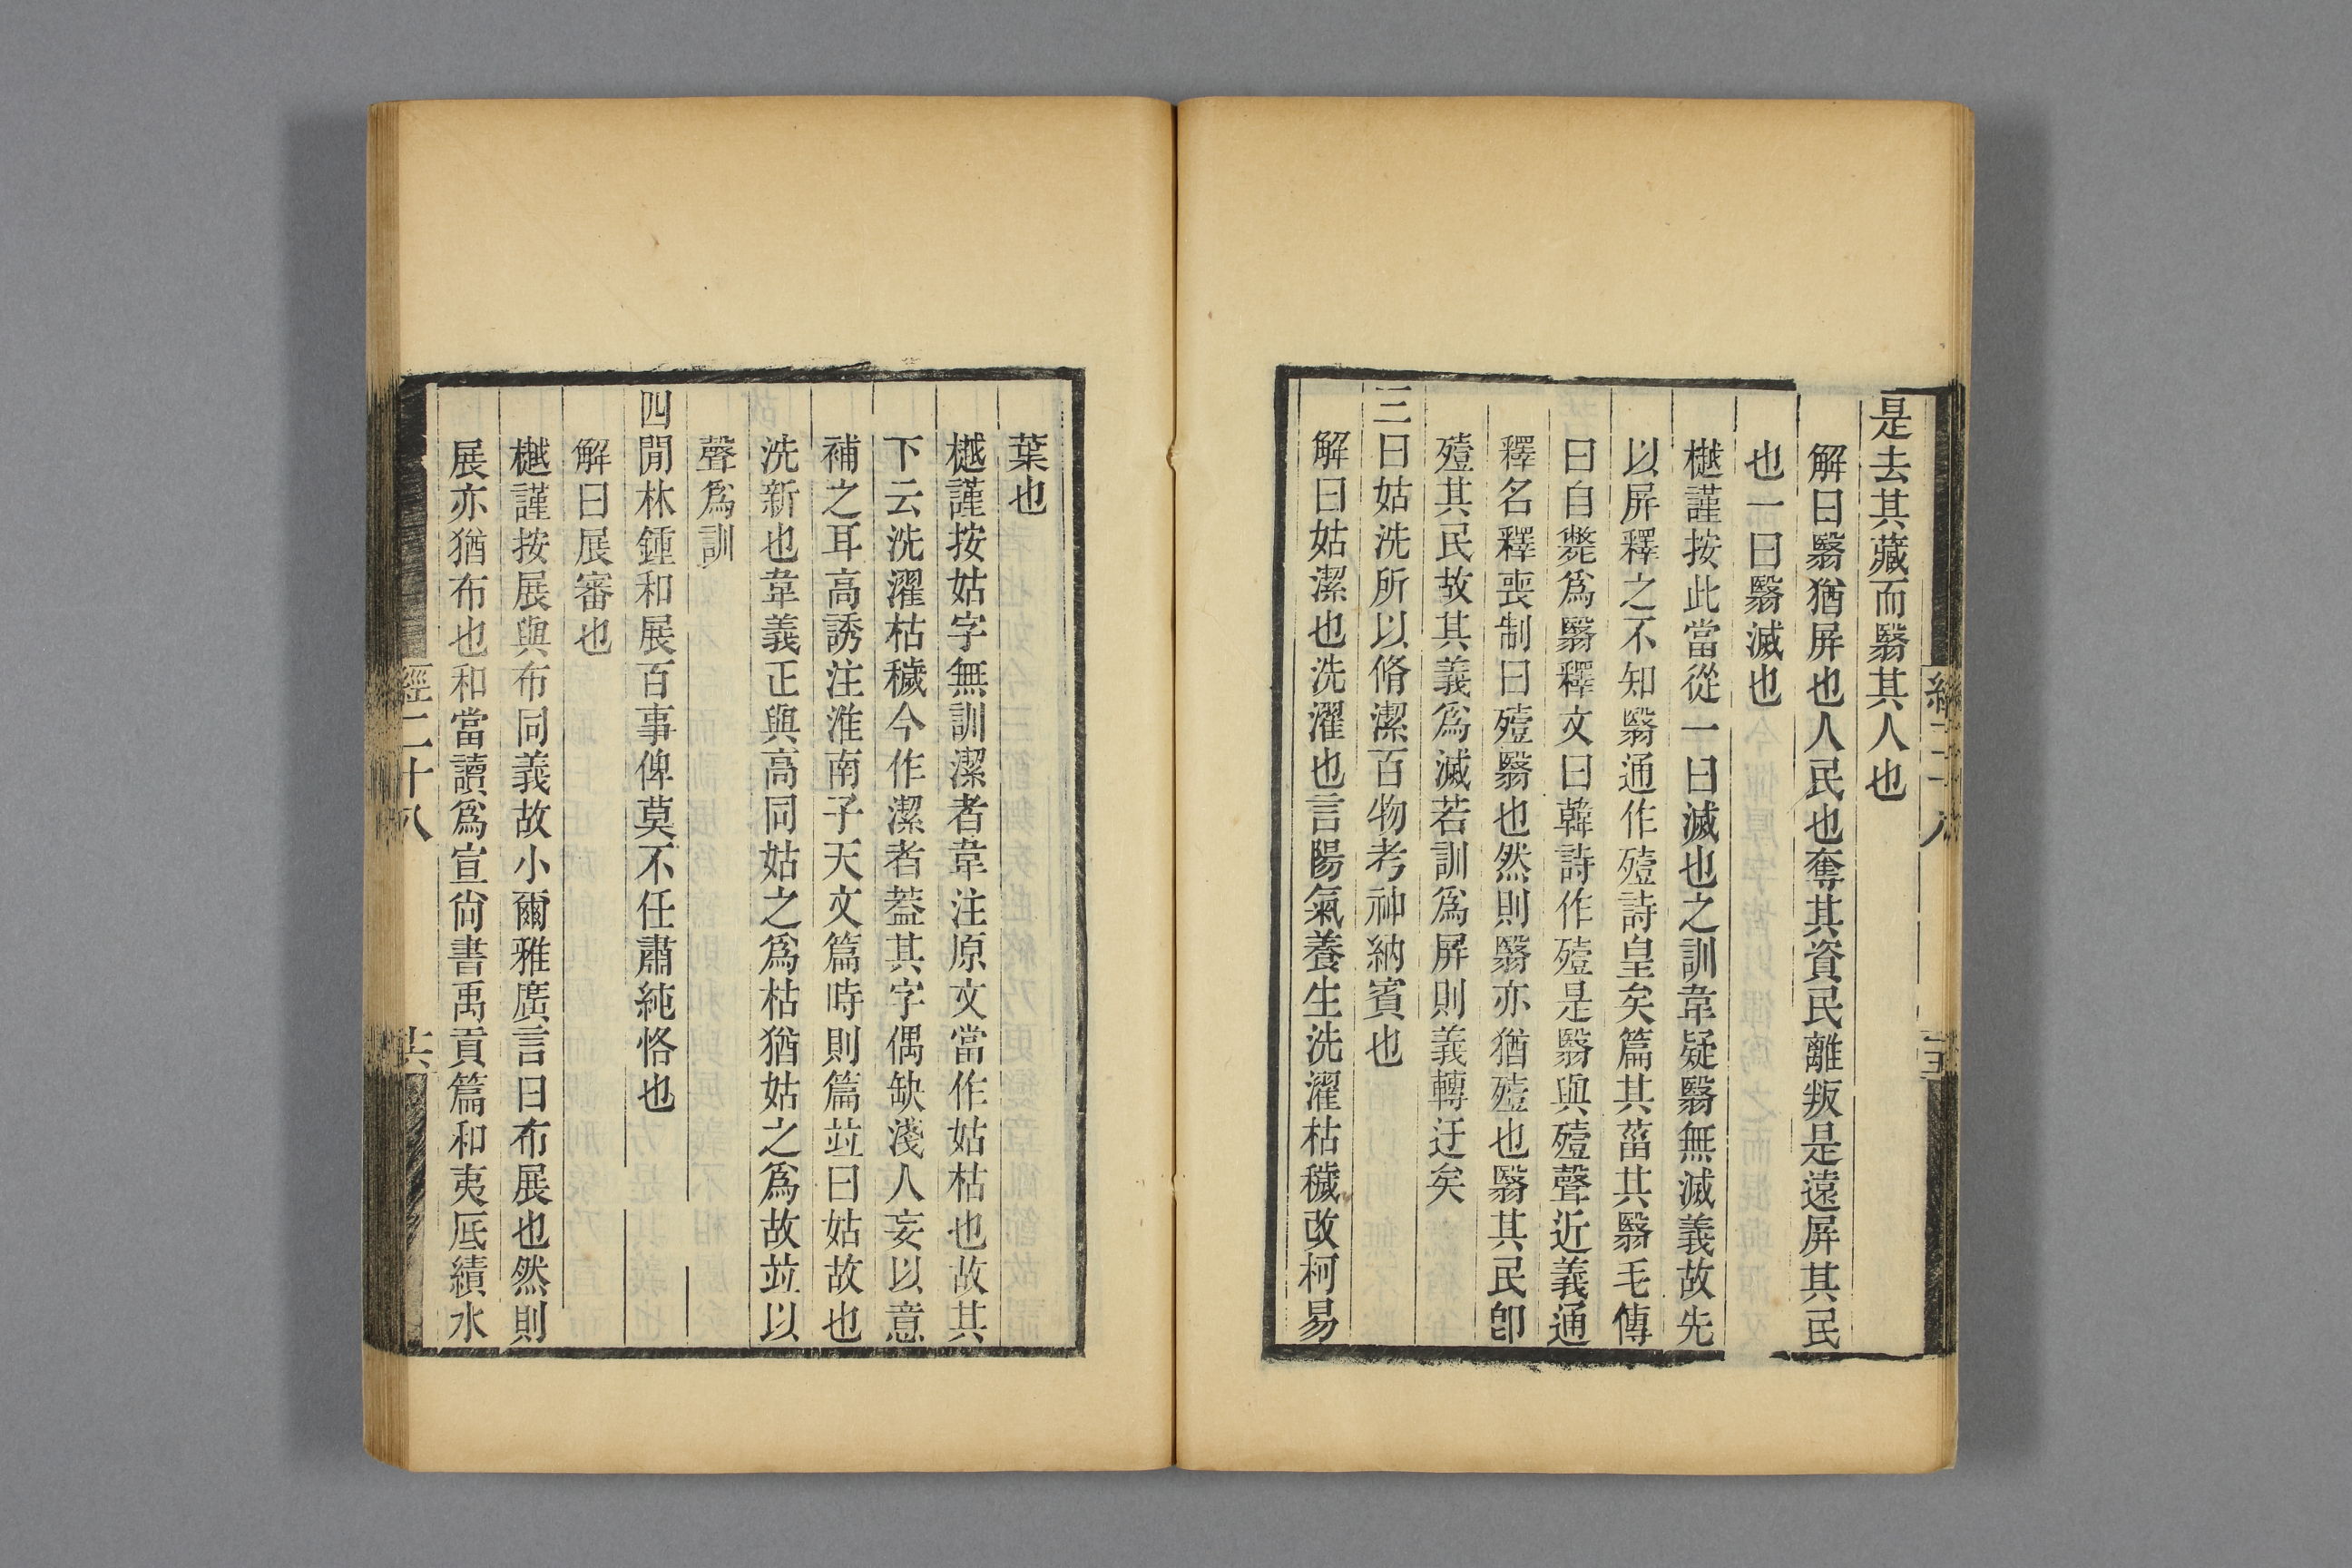 是去其藏而翳其人也
解曰翳猶屏也人民也奪其資民離叛是遠屏其民
也一曰翳滅也
樾謹按此當從一曰滅也之訓韋疑翳無滅義故先
以屏釋之不知翳通作殪詩皇矣篇其菑其翳毛傳
曰自斃爲翳釋文曰韓詩作殪是翳與殪聲近義通
釋名釋喪制曰殪翳也然則翳亦猶殪也翳其民卽
殪其民故其義爲滅若訓爲屏則義轉迂矣
三曰姑洗所以脩潔百物考神納賓也
解曰姑潔也洗濯也言陽氣養生洗濯枯穢改柯易
葉也
樾謹按姑字無訓潔者韋注原文當作姑枯也故其
下云洗濯枯穢今作潔者葢其字偶缺淺人妄以意
補之耳高誘注淮南子天文篇時則篇竝曰姑故也
洗新也韋義正與高同姑之爲枯猶姑之爲故竝以
聲爲訓
四閒林鍾和展百事俾莫不任肅純恪也
解曰展審也
樾謹按展與布同義故小爾雅廣言曰布展也然則
展亦猶布也和當讀爲宣尙書禹貢篇和夷厎績水
經二十八
十六